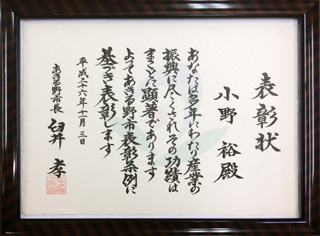 表彰状
小野 裕殿
あなたは多年にわたり産業の
振興に尽くされその功績は
まことに顕著であります
よってあきる野市表彰条例に
基づき表彰します
平成二十六年十一月三日
あきる野市長 臼井 孝